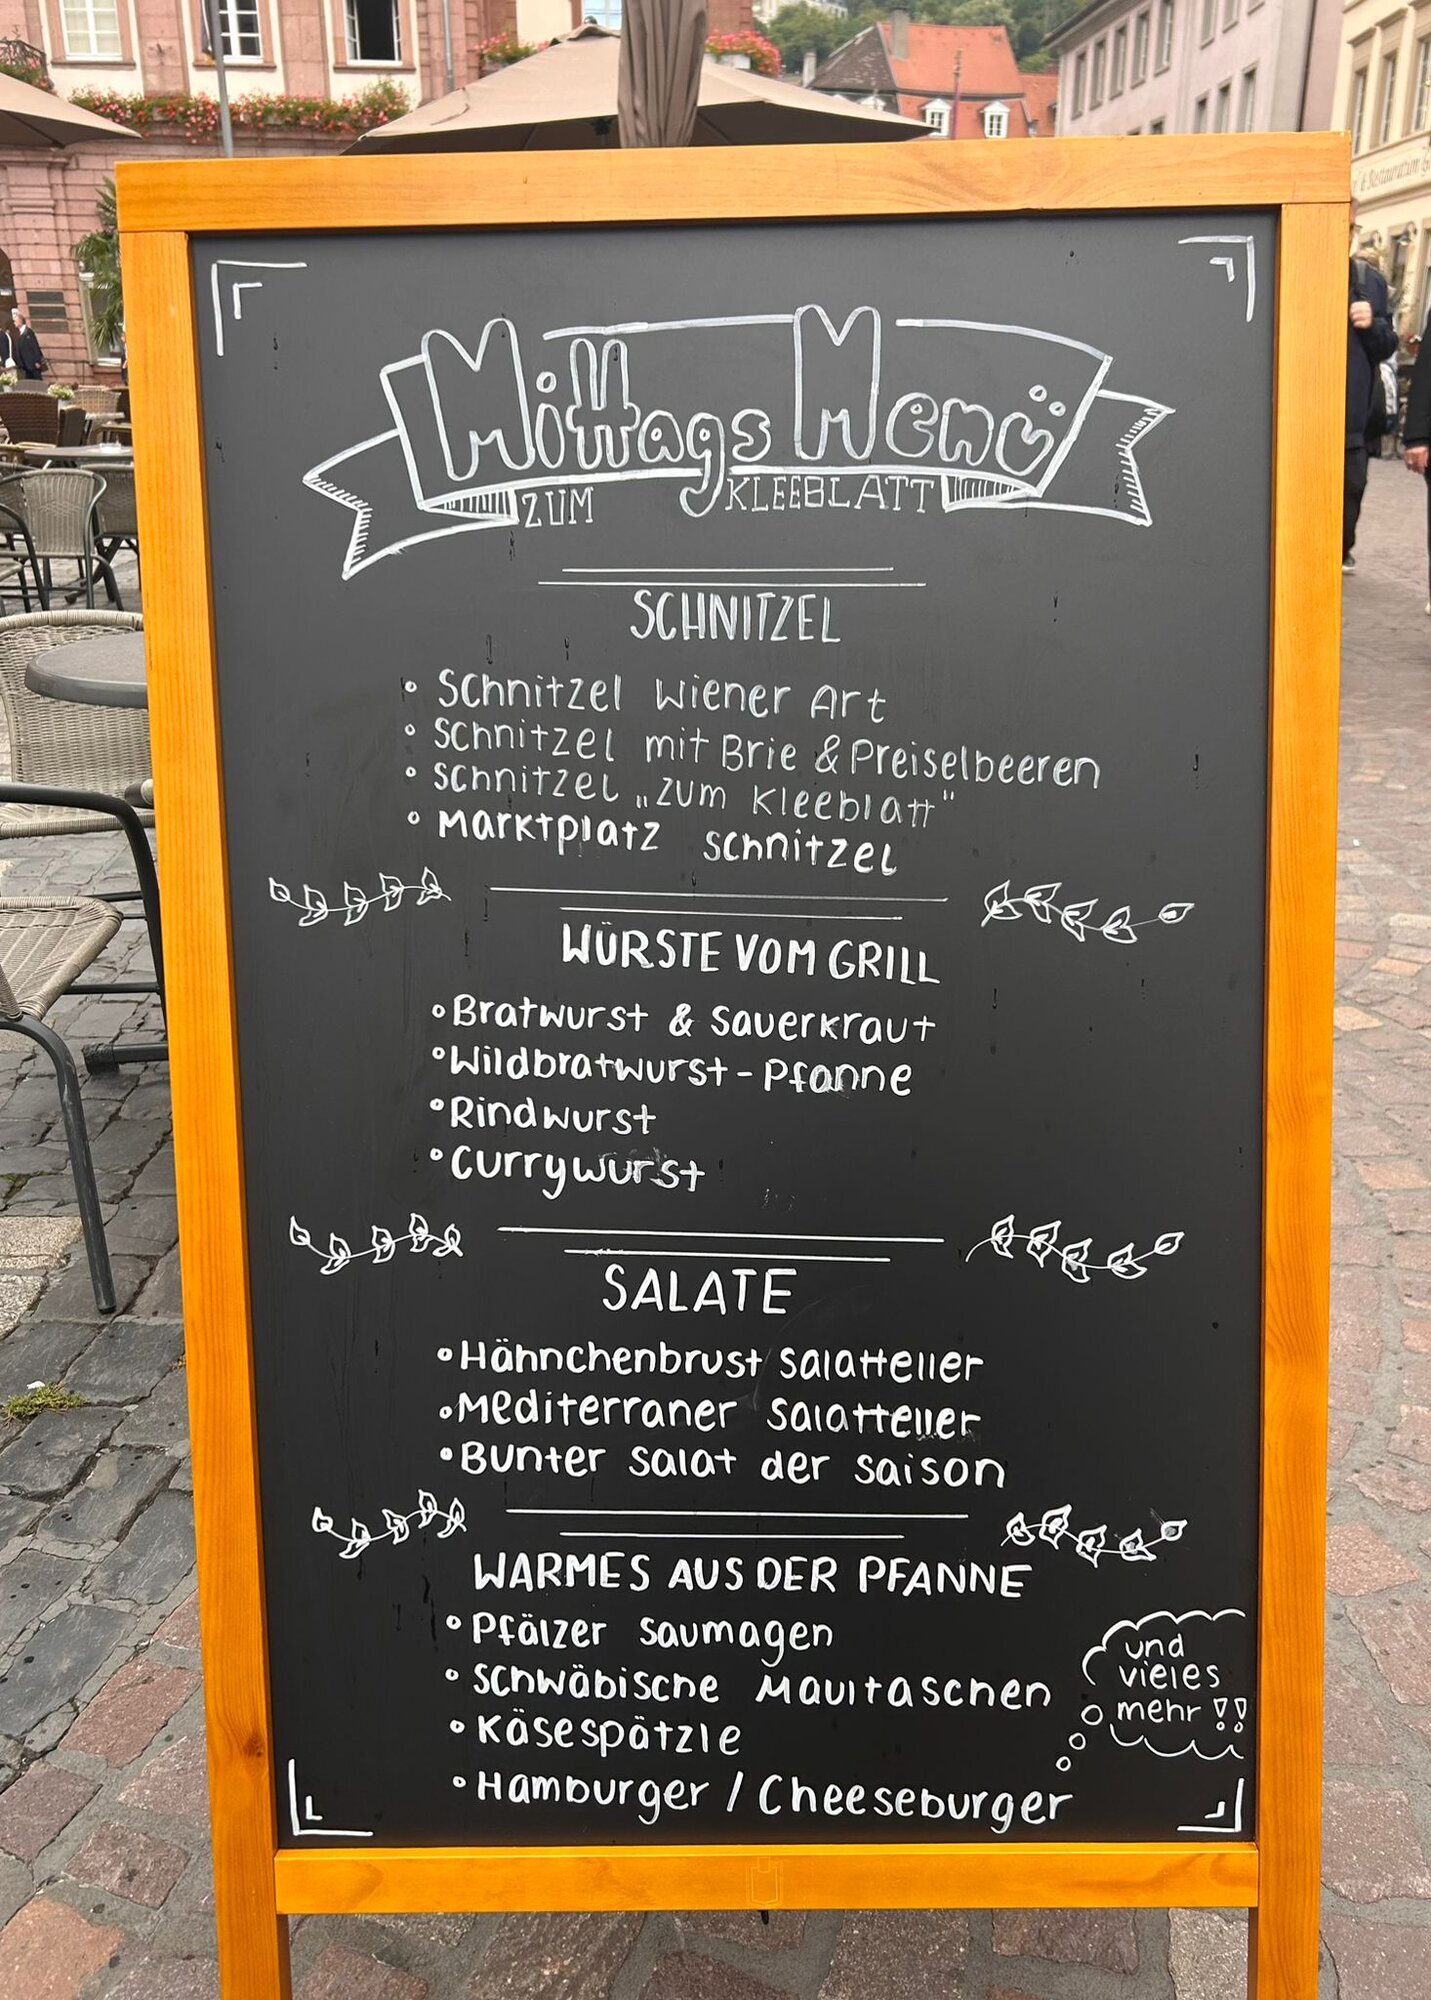 Mittags Menü
ZUM KLEEBLATT
SCHNITZEL
• Schnitzel Wiener Art
• Schnitzel mit Brie & Preiselbeeren
• Schnitzel „zum Kleeblatt"
• Marktplatz Schnitzel
WÜRSTE VOM GRILL
• Bratwurst & Sauerkraut
• Wildbratwurst - Pfanne
• Rindwurst
• Currywurst
SALATE
• Hähnchenbrust Salatteller
• Mediterraner Salatteller
• Bunter Salat der Saison
WARMES AUS DER PFANNE
• Pfälzer Saumagen
• Schwäbische Maultaschen
• Käsespätzle
• Hamburger / Cheeseburger
und
vieles
mehr !!